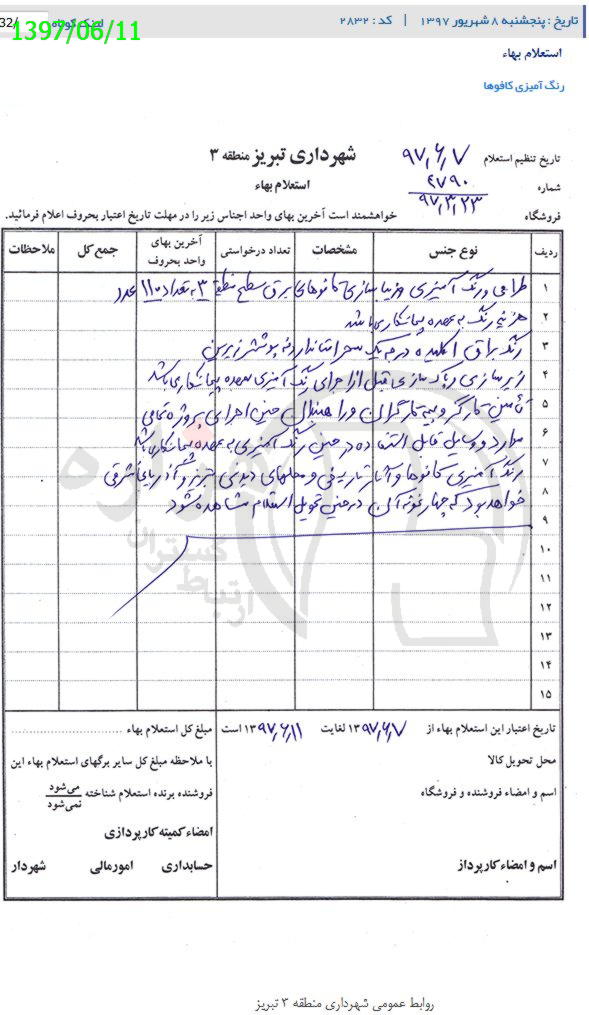 تاریخ : پنجشنبه ۸ شهریور ۱۳۹۷ | کد : ۲۸۳۲
لینک کوتاه
32/
1397/06/11
استعلام بهاء
رنگ آمیزی کافوها
شهرداری تبریز منطقه ۳
تاریخ تنظیم استعلام ۹۷/۶/۷
استعلام بهاء
شماره ۴۷۹۰
۹۷/۳/۲۳
فروشگاه خواهشمند است آخرین بهای واحد اجناس زیر را در مهلت تاریخ اعتبار بحروف اعلام فرمائید.
ردیف نوع جنس مشخصات تعداد درخواستی آخرین بهای واحد بحروف جمع کل ملاحظات
۱ طراحی و رنگ آمیزی و زیبا سازی کافوهای برق سطح منطقه ۳ به تعداد ۱۱۰ عدد
۲ هزینه رنگ به عهده پیمانکار می باشد
۳ رنگ براق اکلیلی درجه یک استاندارد پوششی زیرین
۴ زیرسازی و پاکسازی قبل از اجرای رنگ آمیزی بعهده پیمانکار می باشد
۵ تأمین کارگر و بیمه کارگران و راهبندان حین اجرای پروژه تمامی
۶ موارد و وسایل قابل استفاده در حین رنگ آمیزی به عهده پیمانکار می باشد
۷ رنگ آمیزی کافوها و آثار تاریخی و محلهای دیدنی تبریز و آذربایجانشرقی
۸ خواهد بود که چهار نمونه آن در حین تحویل استعلام مشاهده شود
۹
۱۰
۱۱
۱۲
۱۳
۱۴
۱۵
هزاره
گستران
ارتباط
تاریخ اعتبار این استعلام بهاء از ۱۳۹۷/۶/۷ لغایت ۱۳۹۷/۶/۱۱ است
محل تحویل کالا
اسم و امضاء فروشنده و فروشگاه
اسم و امضاء کارپرداز
مبلغ کل استعلام بهاء ........................
با ملاحظه مبلغ کل سایر برگهای استعلام بهاء این
فروشنده برنده استعلام شناخته می‌شود
نمی‌شود
امضاء کمیته کارپردازی
حسابداری امورمالی شهردار
روابط عمومی شهرداری منطقه ۳ تبریز